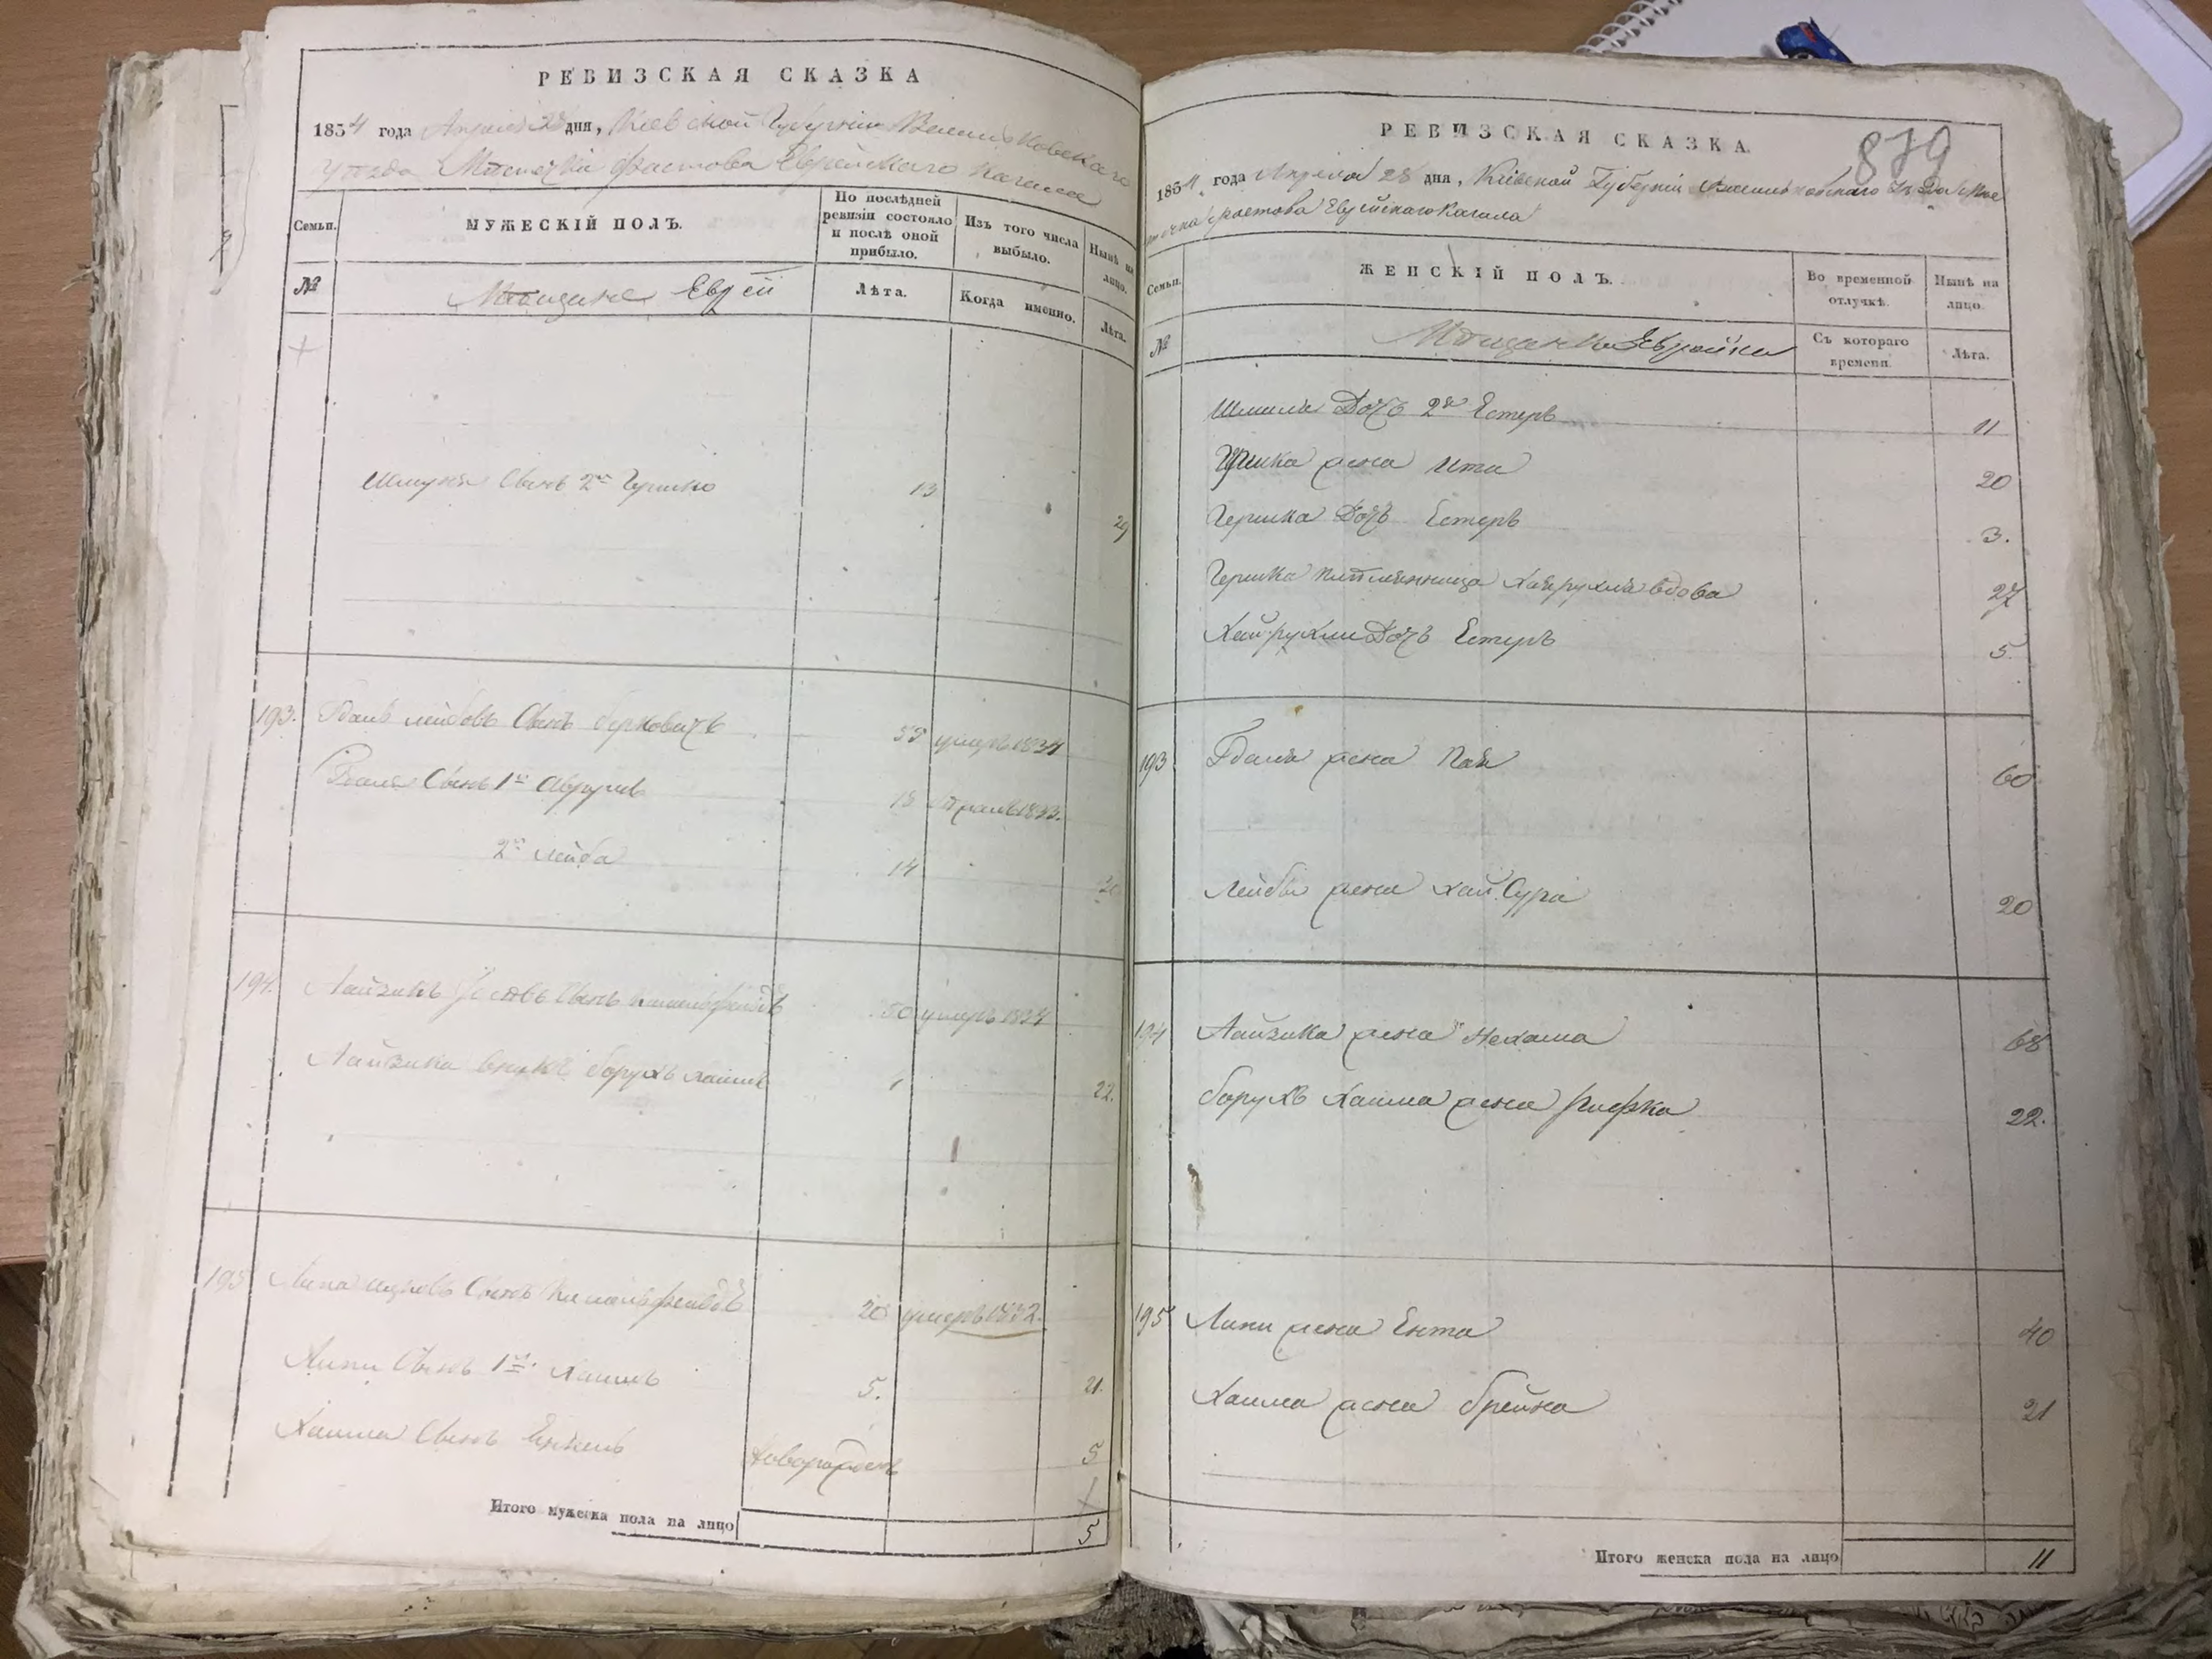 РЕВИЗСКАЯ СКАЗКА
1854 года Апреля 28 дня, Киевской Губернии Васильковскаго
уезда Местечка Фастова Еврейскаго Кагала
Семьи.
МУЖЕСКІЙ ПОЛЪ.
По послѣдней ревизіи состояло и послѣ оной прибыло.
Изъ того числа выбыло.
Нынѣ на лицо.
№
Мещане Еврей
Лѣта.
Когда именно.
Лѣта.
Сынъ 2й Гершко 13 29
193. Лейбовъ Сынъ Берковичъ 55 умеръ 1834
Сынъ 1й 18 1833.
2й Лейба 14
194. Лайзикъ Сынъ 50 умеръ 1834
Лайзика внукъ Борухъ Хаимъ 22.
195 Липа Сынъ 20 умеръ 1832.
Липи Сынъ 1й Хаимъ 5. 21.
Хаима Сынъ новорожденъ 5
Итого мужеска пола на лицо 5
РЕВИЗСКАЯ СКАЗКА
879
1854 года Апреля 28 дня, Кіевской Губерніи Васильковскаго Уезда Мес
течка Фастова Еврейскаго Кагала
Семьи.
ЖЕНСКІЙ ПОЛЪ.
Во временной отлучкѣ.
Нынѣ на лицо.
№
Мещанки Еврейки
Съ котораго времени.
Лѣта.
Дочь 2я Естеръ 11
жена Ита 20
Гершка Дочь Естеръ 3.
Гершка племянница вдова 27
Дочь Естеръ 5.
193 жена Пая 60
Лейбы жена Хай Сура 20
194 Лайзика жена Нехама 68
Борухъ Хаима жена Рифка 22.
195 Липи жена Ента 40
Хаима жена Брейна 21
Итого женска пола на лицо 11